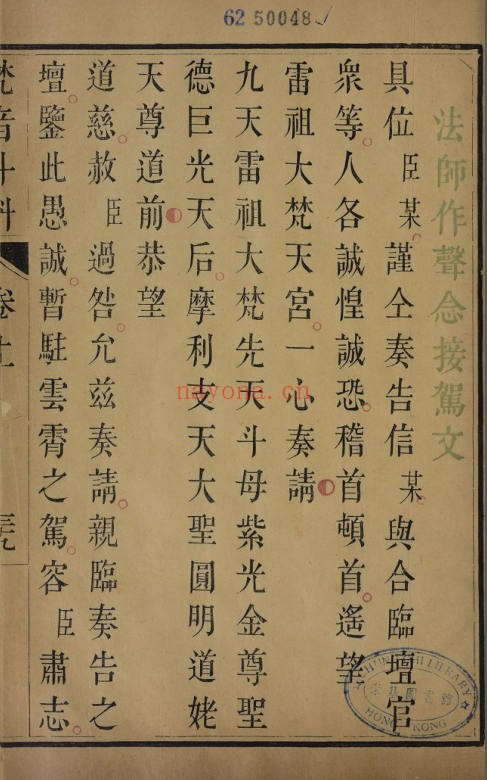 62 50048
法師作聲念接駕文
具位臣某謹仝奏告信某與合臨壇官
衆等人各誠惶誠恐稽首頓首遙望
雷祖大梵天宮一心奏請
九天雷祖大梵先天斗母紫光金尊聖
德巨光天后摩利支天大聖圓明道姥
天尊道前恭望
道慈赦臣過咎允玆奏請親臨奏告之
壇鑒此愚誠暫駐雲霄之駕容臣肅志
梵音斗科 卷上
nayona.cn
LIBRARY
HONG KONG